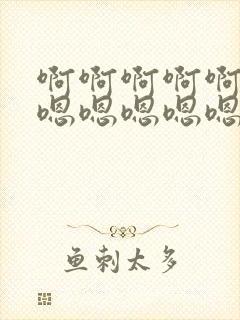 啊啊啊啊啊
嗯嗯嗯嗯嗯
鱼刺太多